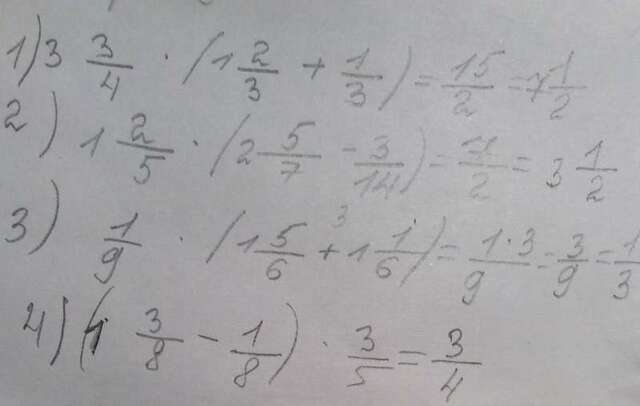 1) 3 3/4 · (1 2/3 + 1/3) = 15/2 = 7 1/2
2) 1 2/5 · (2 5/7 - 3/14) = 7/2 = 3 1/2
3) 1/9 · (1 5/6 + 1 1/6) 3 = 1·3/9 = 3/9 = 1/3
4) (1 3/8 - 1/8) · 3/5 = 3/4